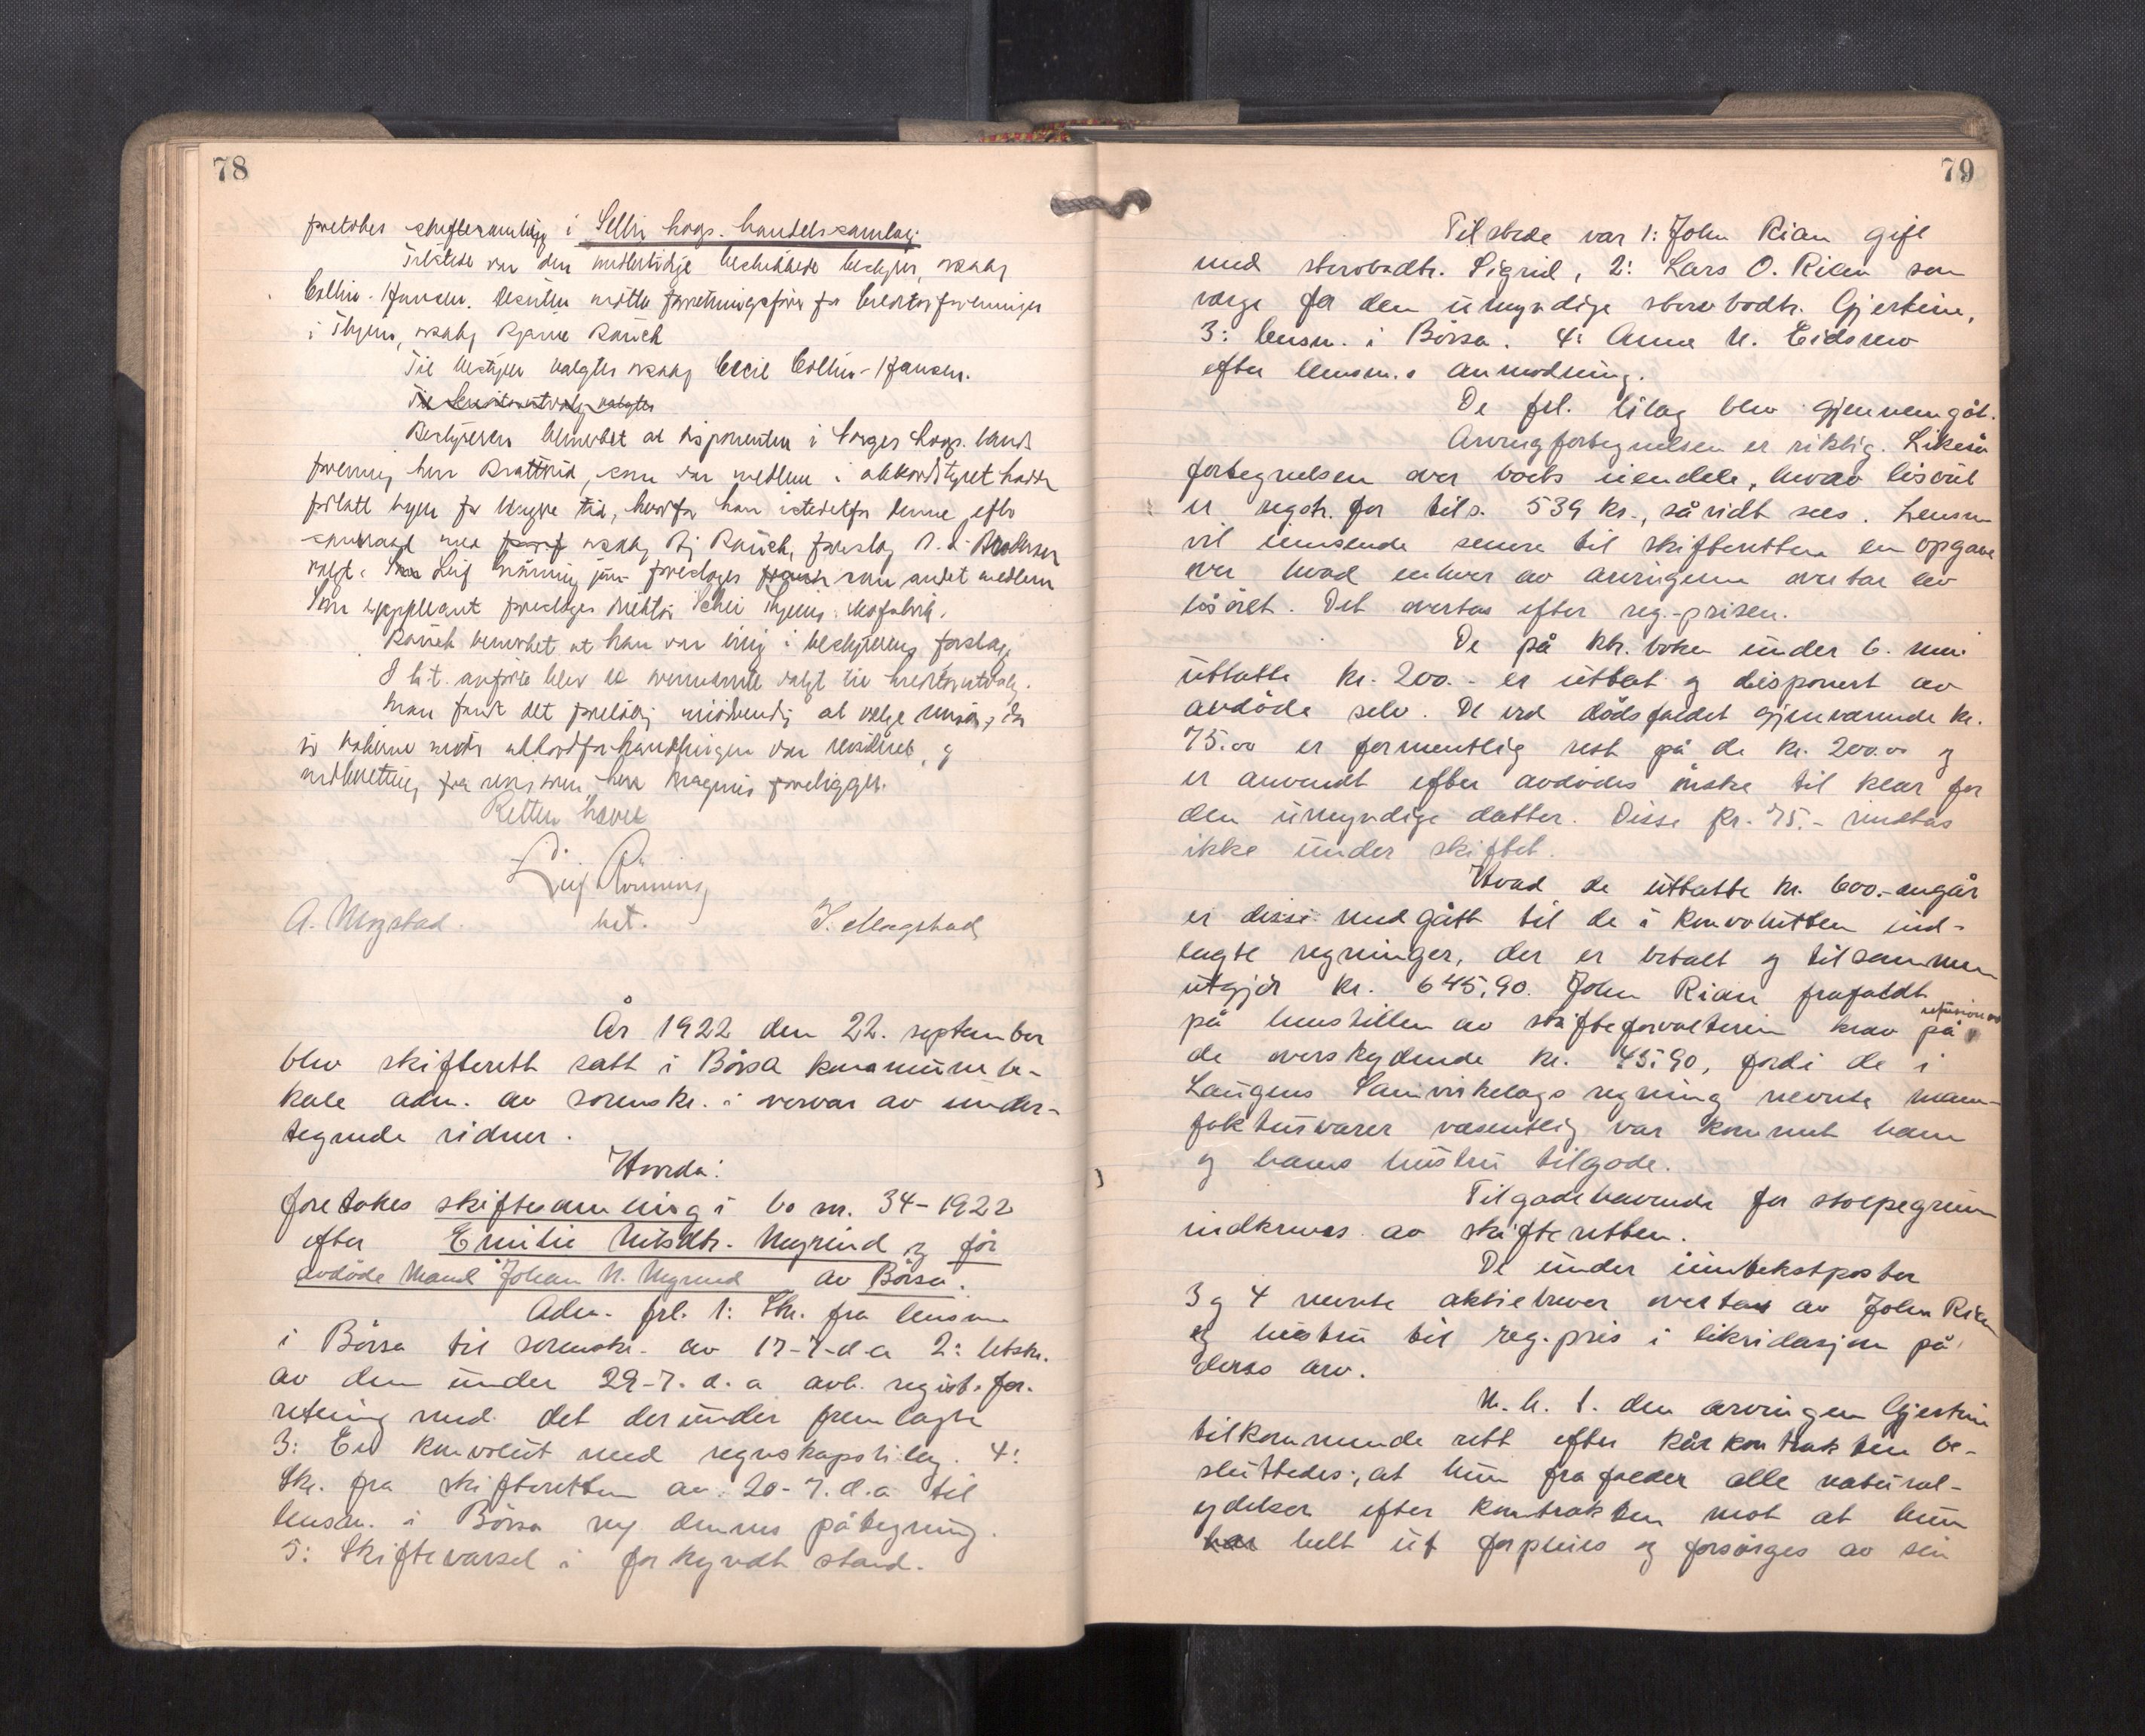 78
foretokes skiftesamling i Selbu koop. handelssamlag.
Tilstede var den midlertidige beskikkede bestyrer, o.r.sakf.
Collin-Hansen. Desuten møtte forretningsfører for Creditorforeningen
i Thjem, o.r.sakf. Bjarne Rausch
Til bestyrer valgtes o.r.sakf. Cecil Collin-Hansen.
Bestyreren bemerket at disponenten i Norges koop. lands
forening, herr Brattvid, som var medlem i akkordstyret hadde
forlatt byen for lengre tid, hvorfor han istedetfor denne, efter
samraad med o.r.sakf. Bj. Rausch, foreslog Andersen
valgt. Leif Rønning jun. foreslages som andet medlem
Som suppleant foreslages direktør Schei Thjems
Rausch bemerket at han var enig i bestyrerens forslag.
I h.t. anførte blev de ovennævnte valgt til kreditorutvalg.
Man fandt det foreløbig unødvendig at velge revisor, da
bøkerne under akkordforhandlingen var revideret, og
indberetning fra revisoren herr Magnus foreligger.
Retten hævet
Leif Rønning
A. Mogstad. kst. K. Mogstad
År 1922 den 22. september
blev skifterett satt i Børsa kommunelo-
kale adm. av sorenskr. i nærvær av under-
tegnede vidner.
Hvorda:
foretokes skiftesamling i bo nr. 34-1922
efter Emilie Nilsdtr. Megrund og før
avdøde mand Johan N. Megrund av Børsa.
Adm. frl. 1: Skr. fra lensm.
i Børsa til sorenskr. av 17-7-d.a 2: Utskr.
av den under 29-7. d. a avh. regist. for-
retning med det derunder fremlagte
3: En konvolut med regnskapsbilag. 4:
Skr. fra skifteretten av 20-7. d.a til
lensm. i Børsa og dennes påtegning.
5: Skiftevarsel i forkyndt stand.
79
Tilstede var 1: John Rian gift
med sterbodtr. Sigrid, 2: Lars O. Rian som
verge for den umyndige sterbodtr. Gjertine,
3: lensm. i Børsa. 4: Anna M. Eidsmo
efter lensm.s anmodning.
De frl. bilag blev gjennemgåt.
Arvingfortegnelsen er riktig. Likeså
fortegnelsen over boets eiendele, hvorav løsøret
er regstr. for tils. 539 kr., såvidt sees. Lensm
vil innsende senere til skifteretten en opgave
over hvad enhver av arvingene overtar av
løsøret. Det overtas efter reg.-prisen.
De på bkb. boken under 6. mai
uttatte kr. 200.- er uttat og disponert av
avdøde selv. De ved dødsfaldet gjenværende kr.
75.00 er formentlig rest på de kr. 200.00 og
er anvendt efter avdødes ønske til klær for
den umyndige datter. Disse kr. 75.- inndtas
ikke under skiftet.
Hvad de uttatte kr. 600.- angår
er disse medgått til de i konvolutten ind-
lagte regninger, der er betalt og tilsammen
utgjør kr. 645,90. John Rian frafaldt
på henstillen av skifteforvalteren krav på refusion av
de overskydende kr. 45,90, fordi de i
Laugens Samvirkelags regning nevnte manu-
fakturvarer væsentlig var kommet ham
og hans hustru tilgode.
Tilgodehavende for stolpegrunn
indkreves av skifteretten.
De under inntekstposter
3 og 4 nevnte aktiebrever overtas av John Rian
og hustru til reg.pris i likvidasjon på
deres arv.
M. h. t. den arvingen Gjertine
tilkommende rett efter kårkontrakten be-
sluttedes; at hun frafalder alle natural-
ydelser efter kontrakten mot at hun
helt ut forpleies og forsørges av sin